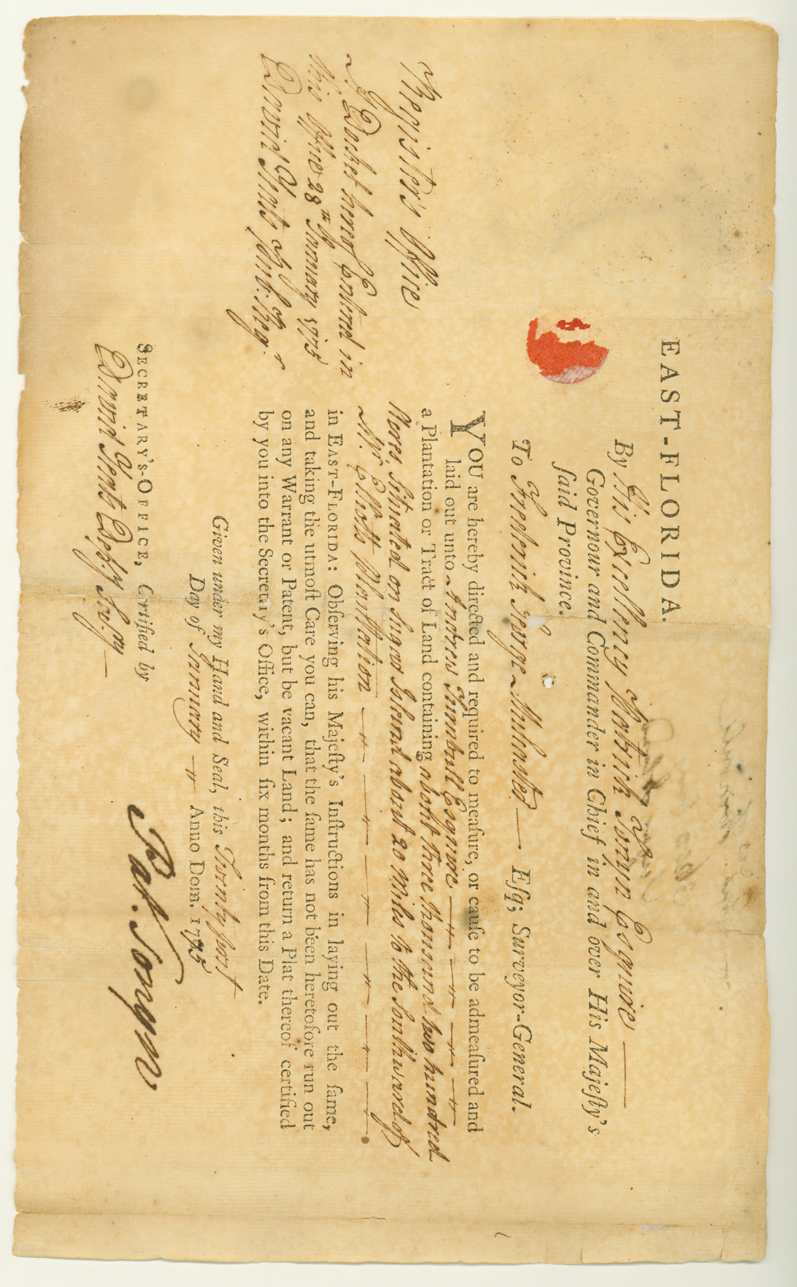 EAST-FLORIDA.
By His Excellency Patrick Tonyn Esquire
Governour and Commander in Chief in and over His Majeſty's
ſaid Province.
To Frederick George Mulcaster Eſq; Surveyor-General.
YOU are hereby directed and required to meaſure, or cauſe to be admeaſured and
laid out unto Andrew Turnbull Esquire
a Plantation or Tract of Land containing about three thousand two hundred
Acres Situated on Sugar Island about 20 Miles to the Southward of
Mr. Elliotts Plantation
in EAST-FLORIDA: Obſerving his Majeſty's Inſtructions in laying out the ſame,
and taking the utmoſt Care you can, that the ſame has not been heretofore run out
on any Warrant or Patent, but be vacant Land; and return a Plat thereof certified
by you into the Secretary's Office, within ſix months from this Date.
Given under my Hand and Seal, this Twenty first
Day of January Anno Dom. 1775
Pat. Tonyn
SECRETARY'S-OFFICE, Certified by
David Yeats Depy. Secry.
Register's Office
A Docket hereof Entered in
this Office 28th January 1775
David Yeats Depy. Regr.